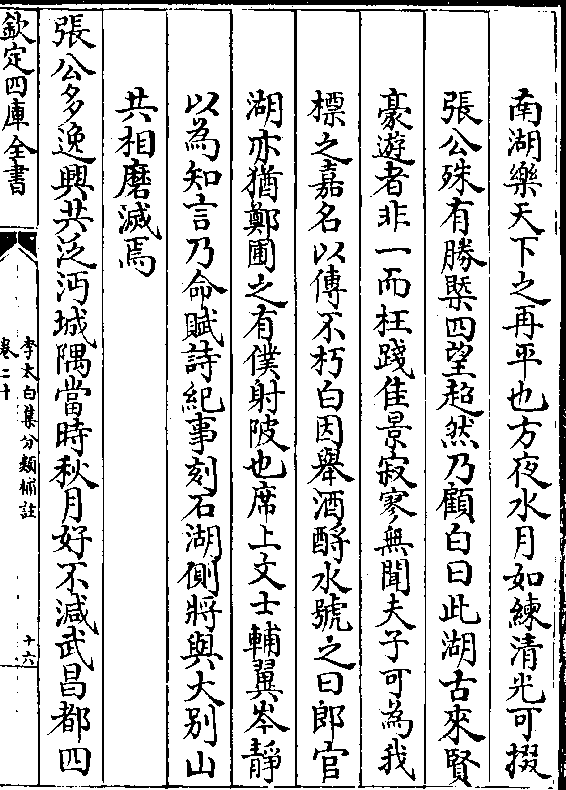 南湖樂天下之再平也方夜水月如練清光可掇
張公殊有勝槩四望超然乃顧白曰此湖古來賢
豪遊者非一而枉踐佳景寂寥無聞夫子可為我
標之嘉名以傳不朽白因舉酒酹水號之曰郎官
湖亦猶鄭圃之有僕射陂也席上文士輔翼岑靜
以為知言乃命賦詩紀事刻石湖側將與大别山
共相磨滅焉
張公多逸興共泛沔城隅當時秋月好不減武昌都四
欽定四庫全書
李太白集分類補註
卷二十
十六